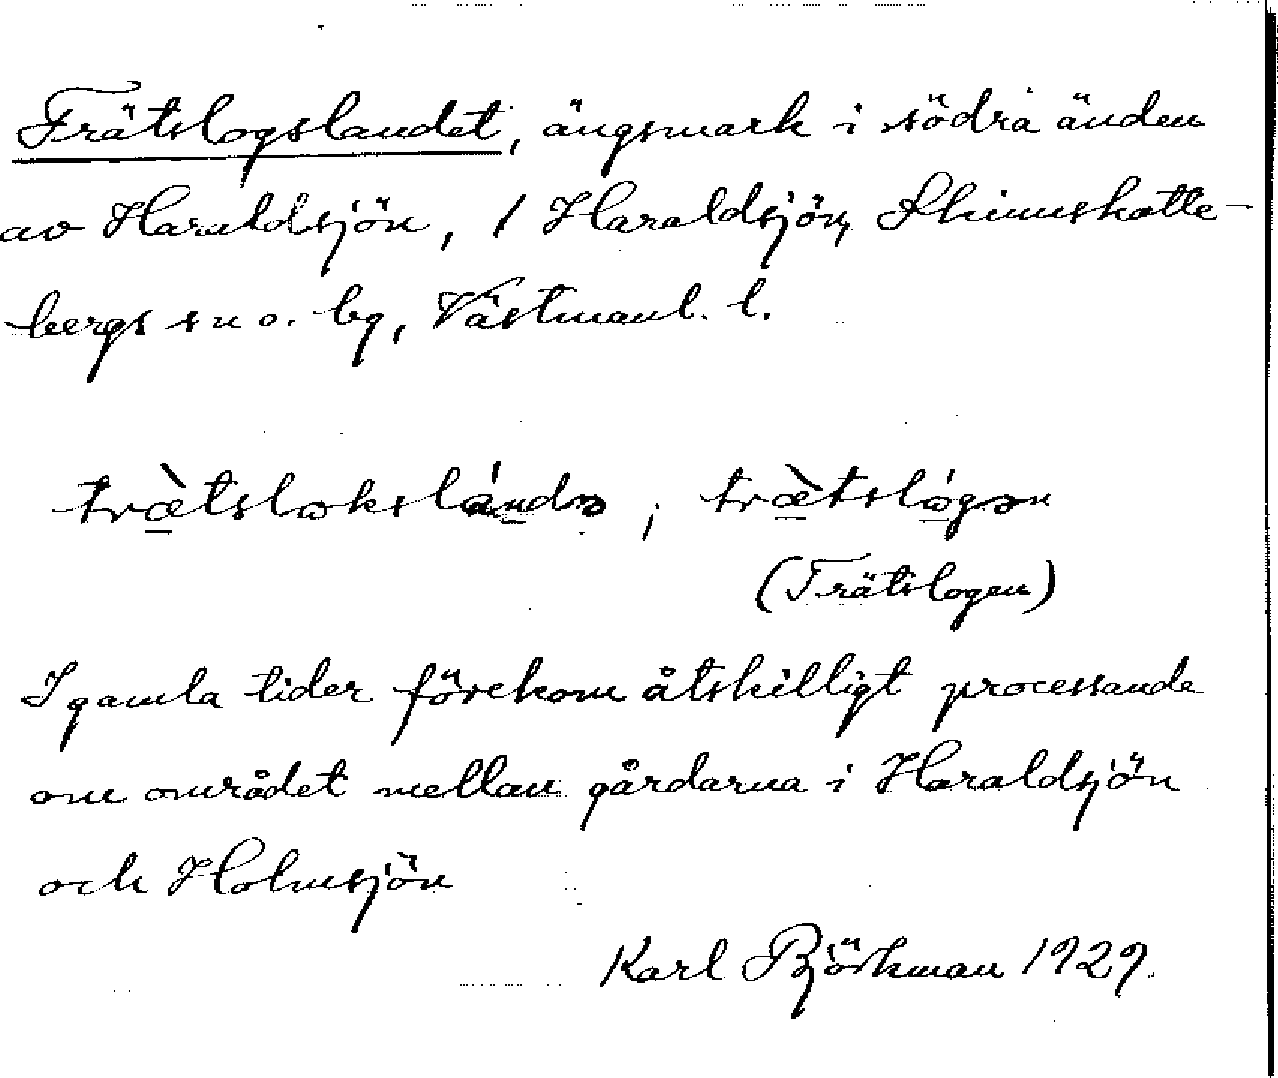 Trätslogslandet, ängsmark i södra änden
av Haraldsjön, 1 Haraldsjön, Skinnskatte-
bergs sn o. bg, Västmanl. l.
trætslokslandə, trætslogən
(Trätslogen)
I gamla tider förekom åtskilligt processande
om området mellan gårdarna i Haraldsjön
och Holmsjön
Karl Björkman 1929.